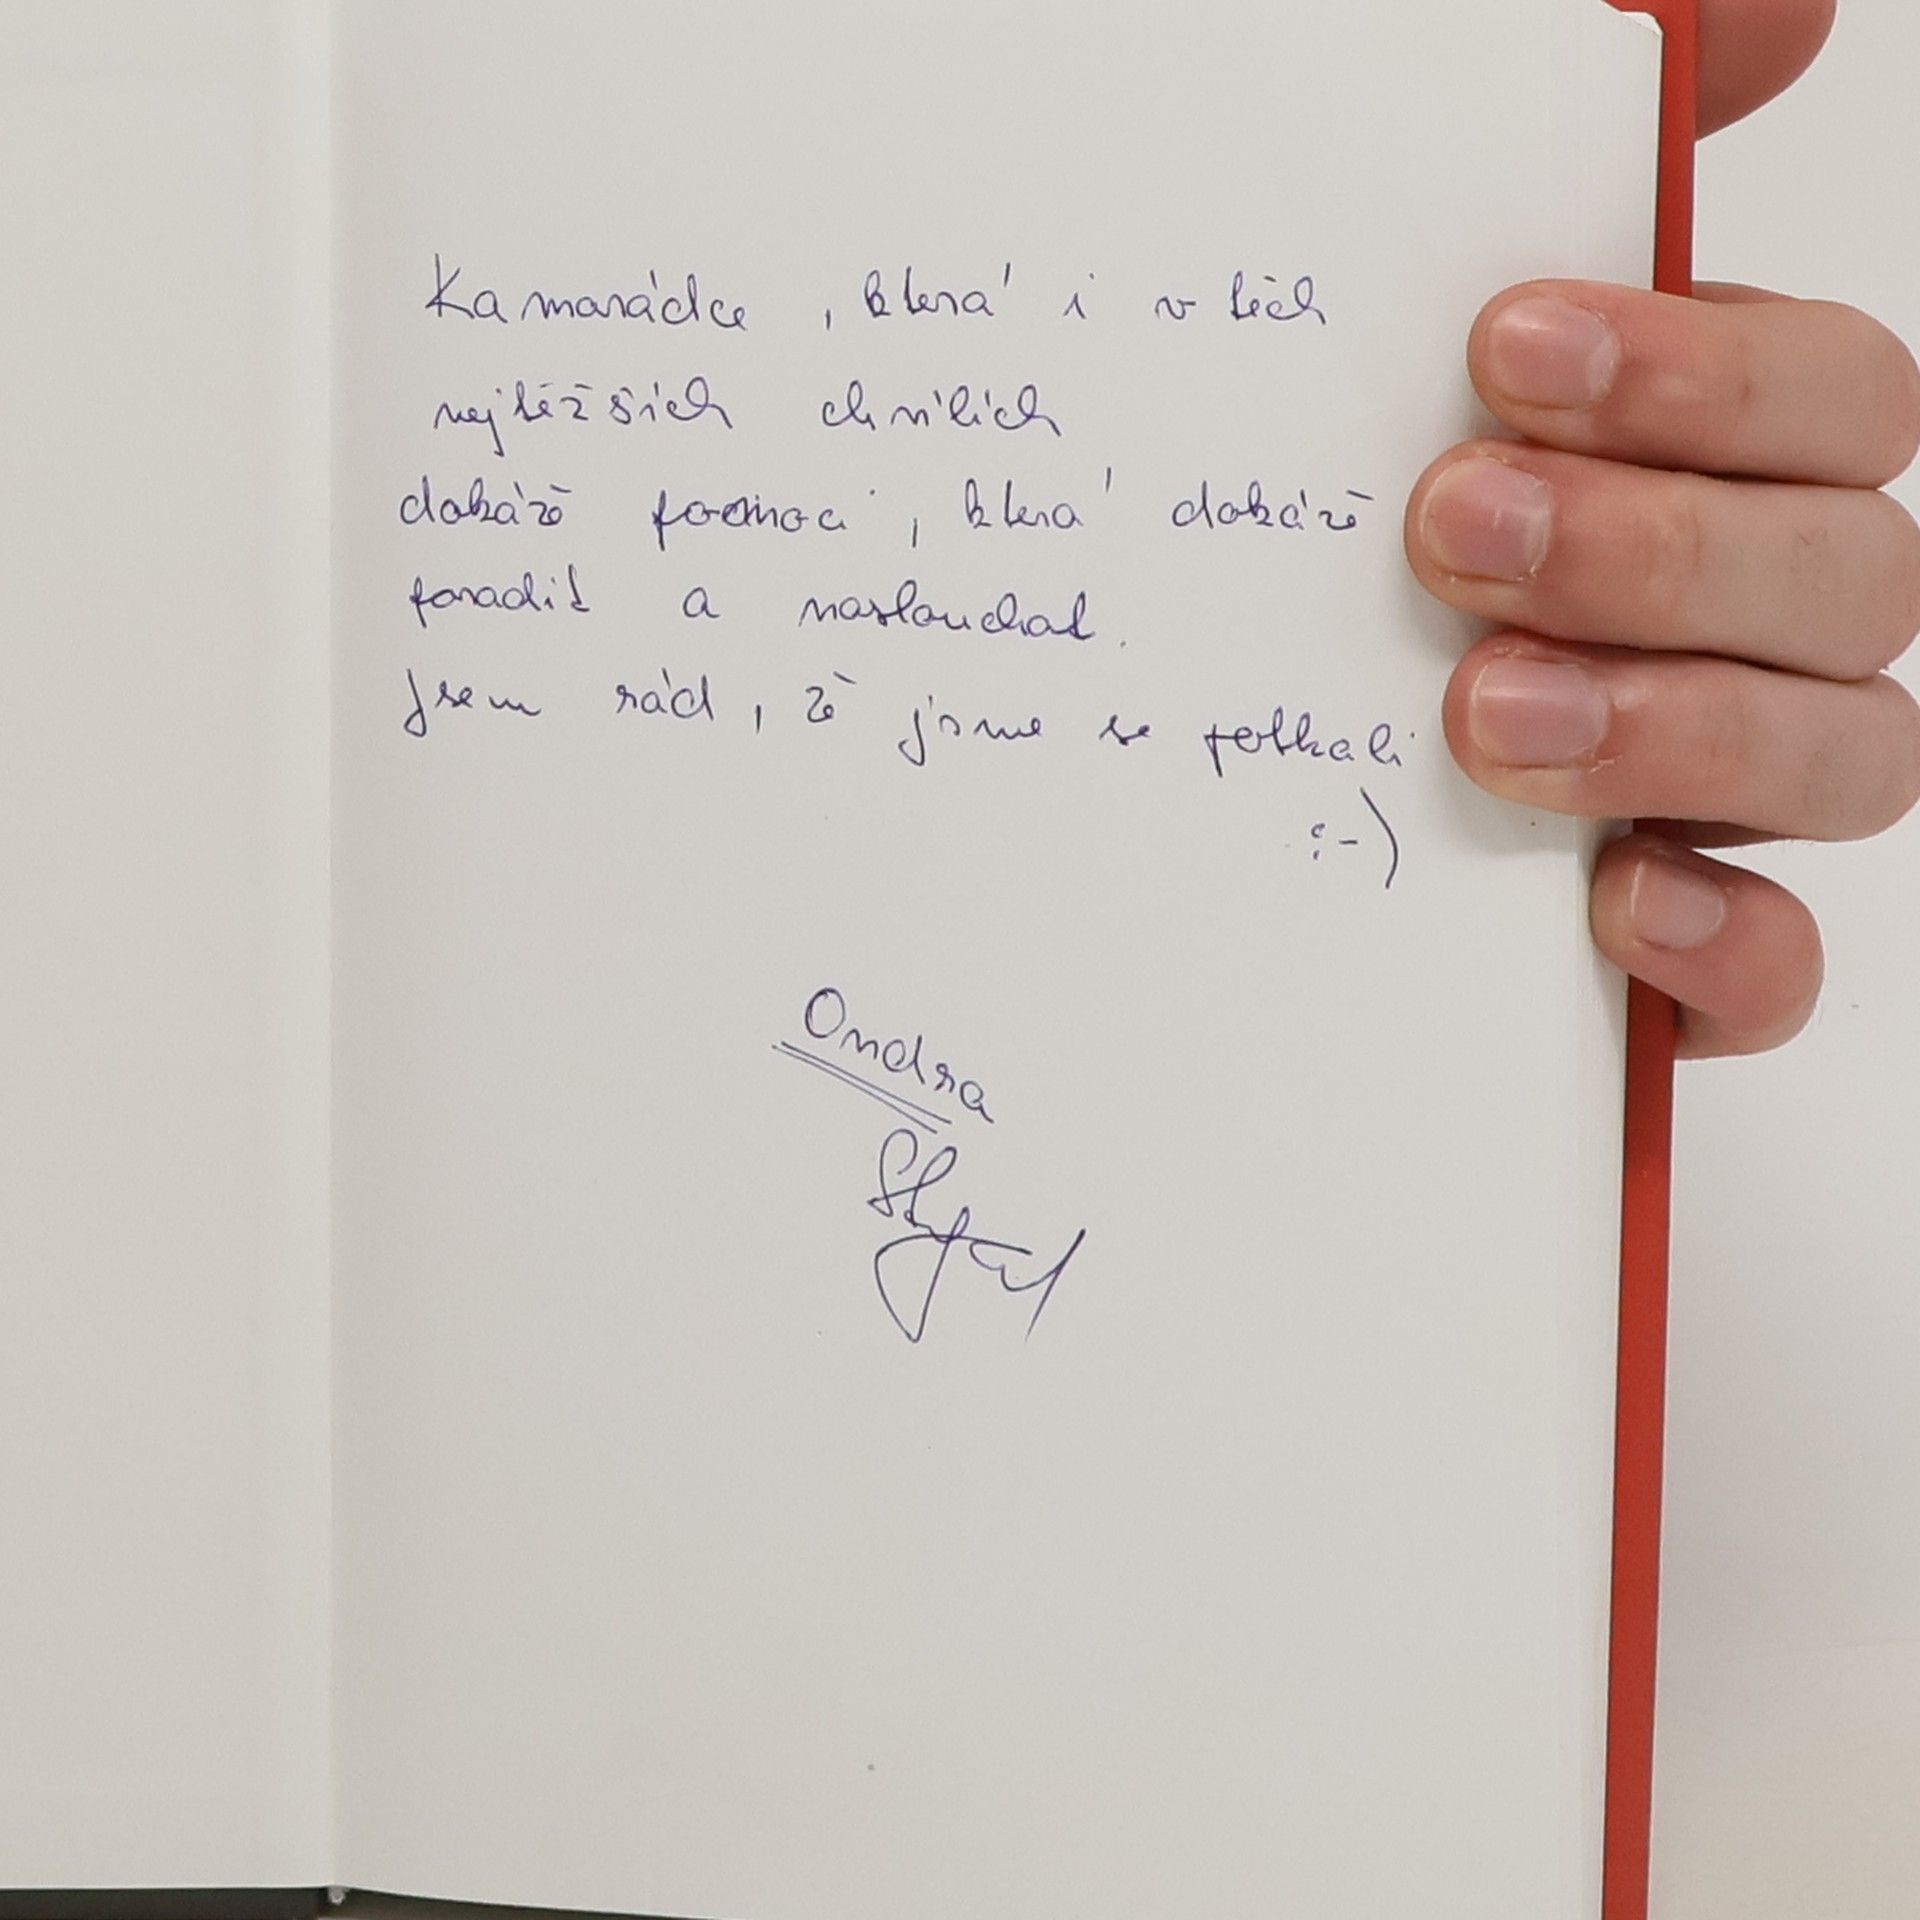 Kamarádce, která i v těch
nejtěžších chvílích
dokáže pomoci, která dokáže
poradit a naslouchat.
Jsem rád, že jsme se potkali
:-)
Ondra